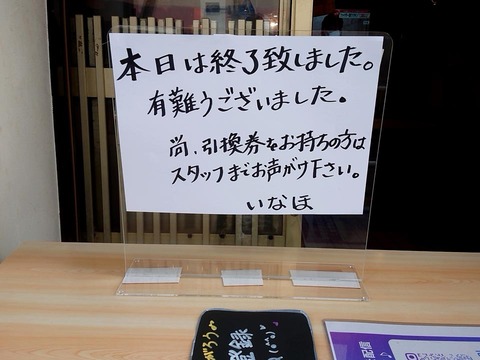 本日は終了致しました。
有難うございました。
尚、引換券をお持ちの方は
スタッフまでお声がけ下さい。
いなほ
登録
配信